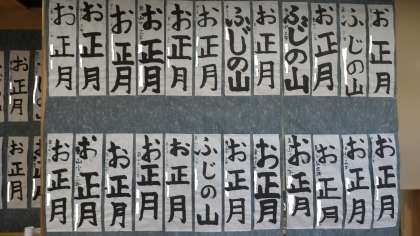 お正月
ふじの山
お正月
ふじの山
お正月
ふじの山
お正月
お正月
お正月
お正月
お正月
お正月
お正月
お正月
お正月
お正月
お正月
お正月
ふじの山
お正月
お正月
お正月
お正月
お正月
お正月
お正月